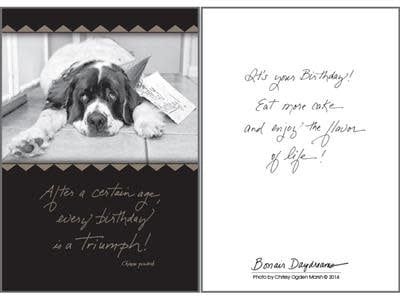 After a certain age,
every birthday
is a Triumph!
It's your Birthday!
Eat more cake
and enjoy the flavor
of life!
Bonair Daydreams
Photo by Chrissy Ogden Marsh © 2014